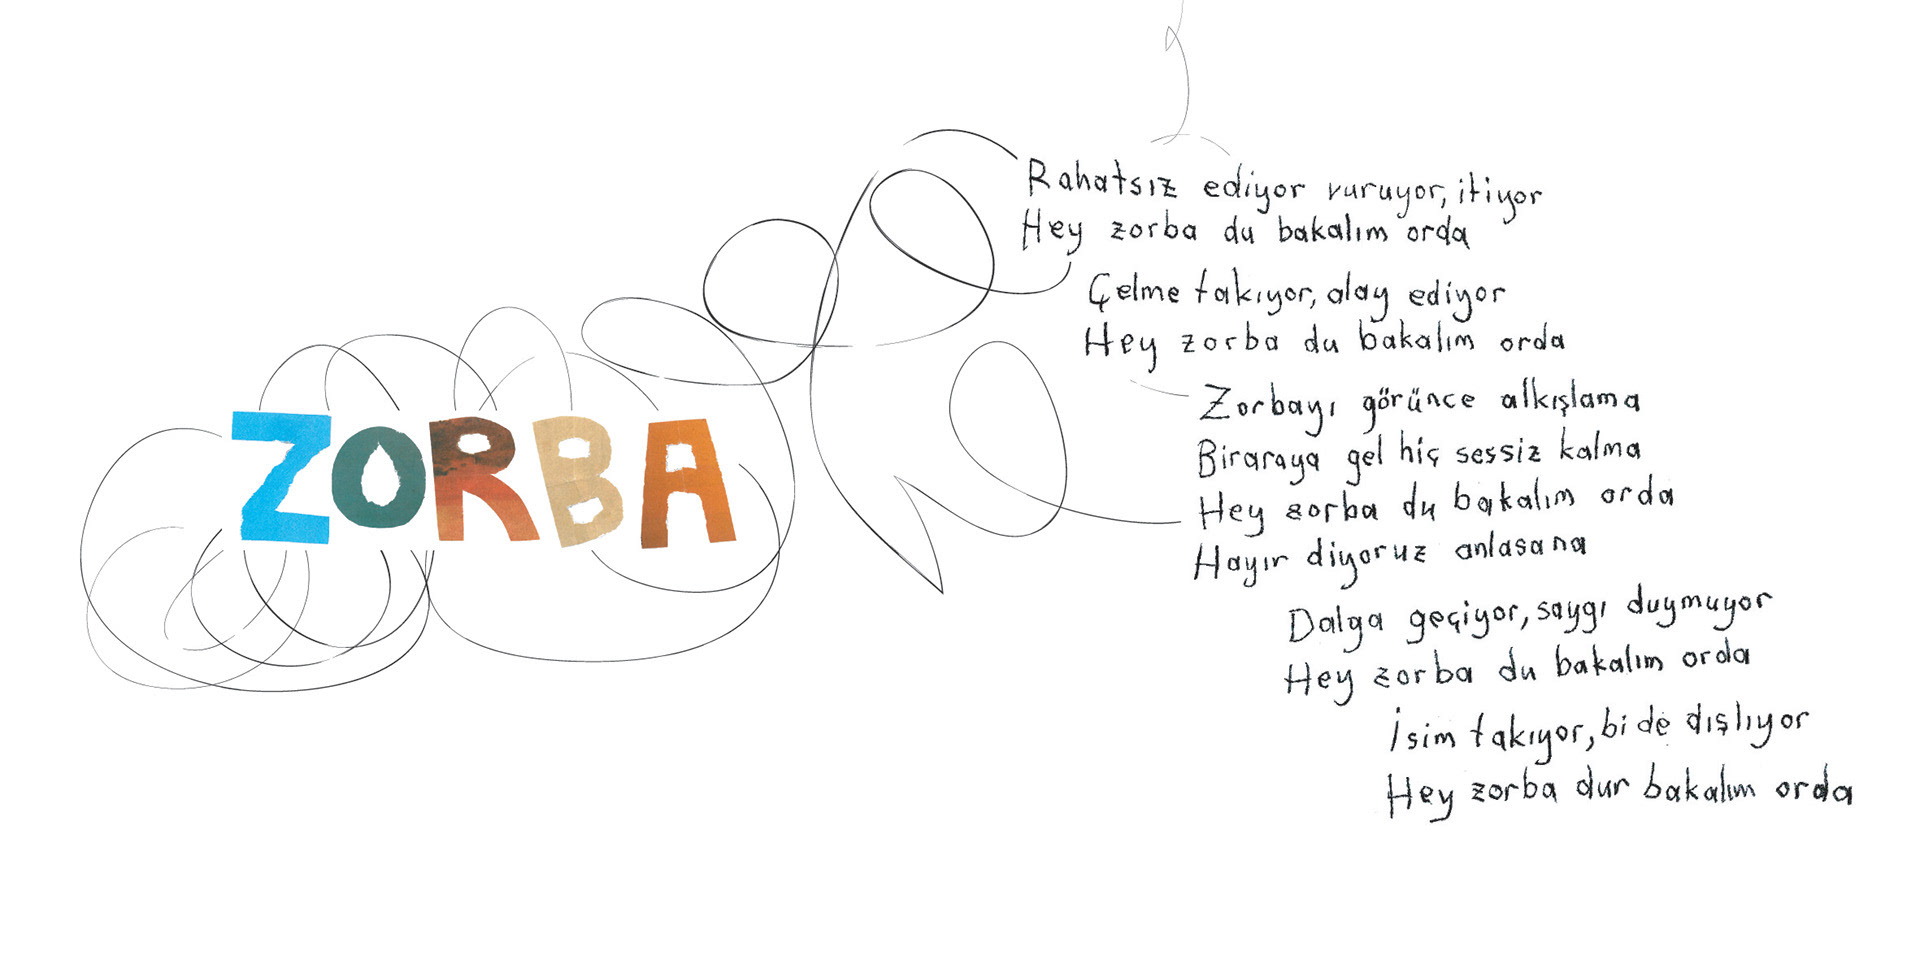 ZORBA
Rahatsız ediyor vuruyor, itiyor
Hey zorba du bakalım orda
Çelme takıyor, alay ediyor
Hey zorba du bakalım orda
Zorbayı görünce alkışlama
Biraraya gel hiç sessiz kalma
Hey zorba du bakalım orda
Hayır diyoruz anlasana
Dalga geçiyor, saygı duymuyor
Hey zorba du bakalım orda
İsim takıyor, bi de dışlıyor
Hey zorba dur bakalım orda